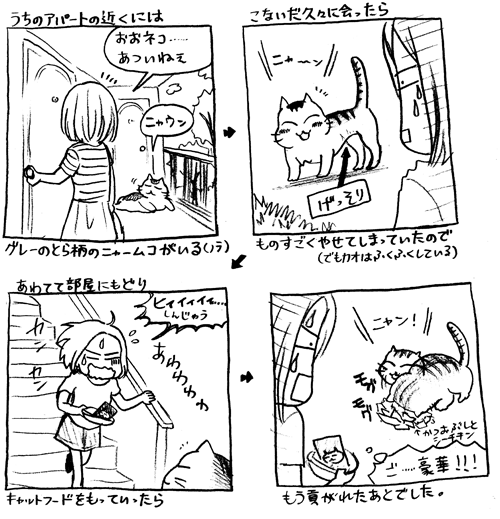 うちのアパートの近くには
おおネコ……
あついねえ
ニャウン
グレーのとら柄のニャームコがいる(ノラ)
こないだ久々に会ったら
ニャーン
げっそり
ものすごくやせてしまっていたので
(でもカオはふくふくしている)
あわてて部屋にもどり
ヒィィィィィ……
しんじゅう
カン
カン
あわわわわ
キャットフードをもっていったら
ニャン!
モグ
モグ
かつおぶしと
シーチキン
ご……豪華!!!
もう貢がれたあとでした。